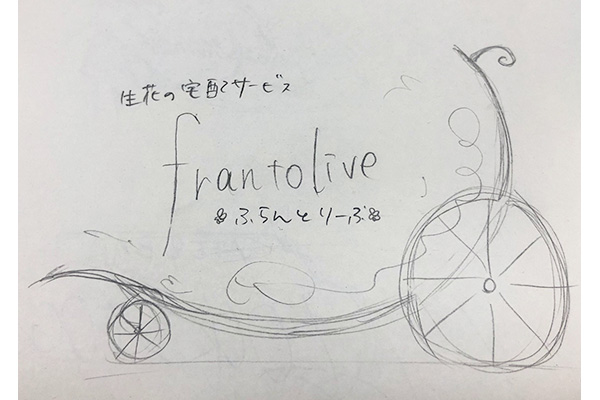 生花の宅配サービス
frantolive
ふらんとりーぶ